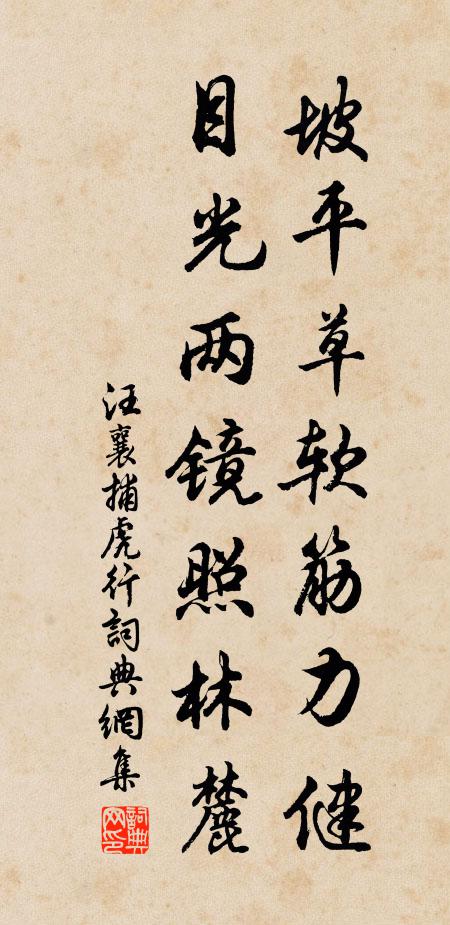 坡平草软筋力健
目光两镜照林麓
汪襄捕虎行詞典網集
詞典网印